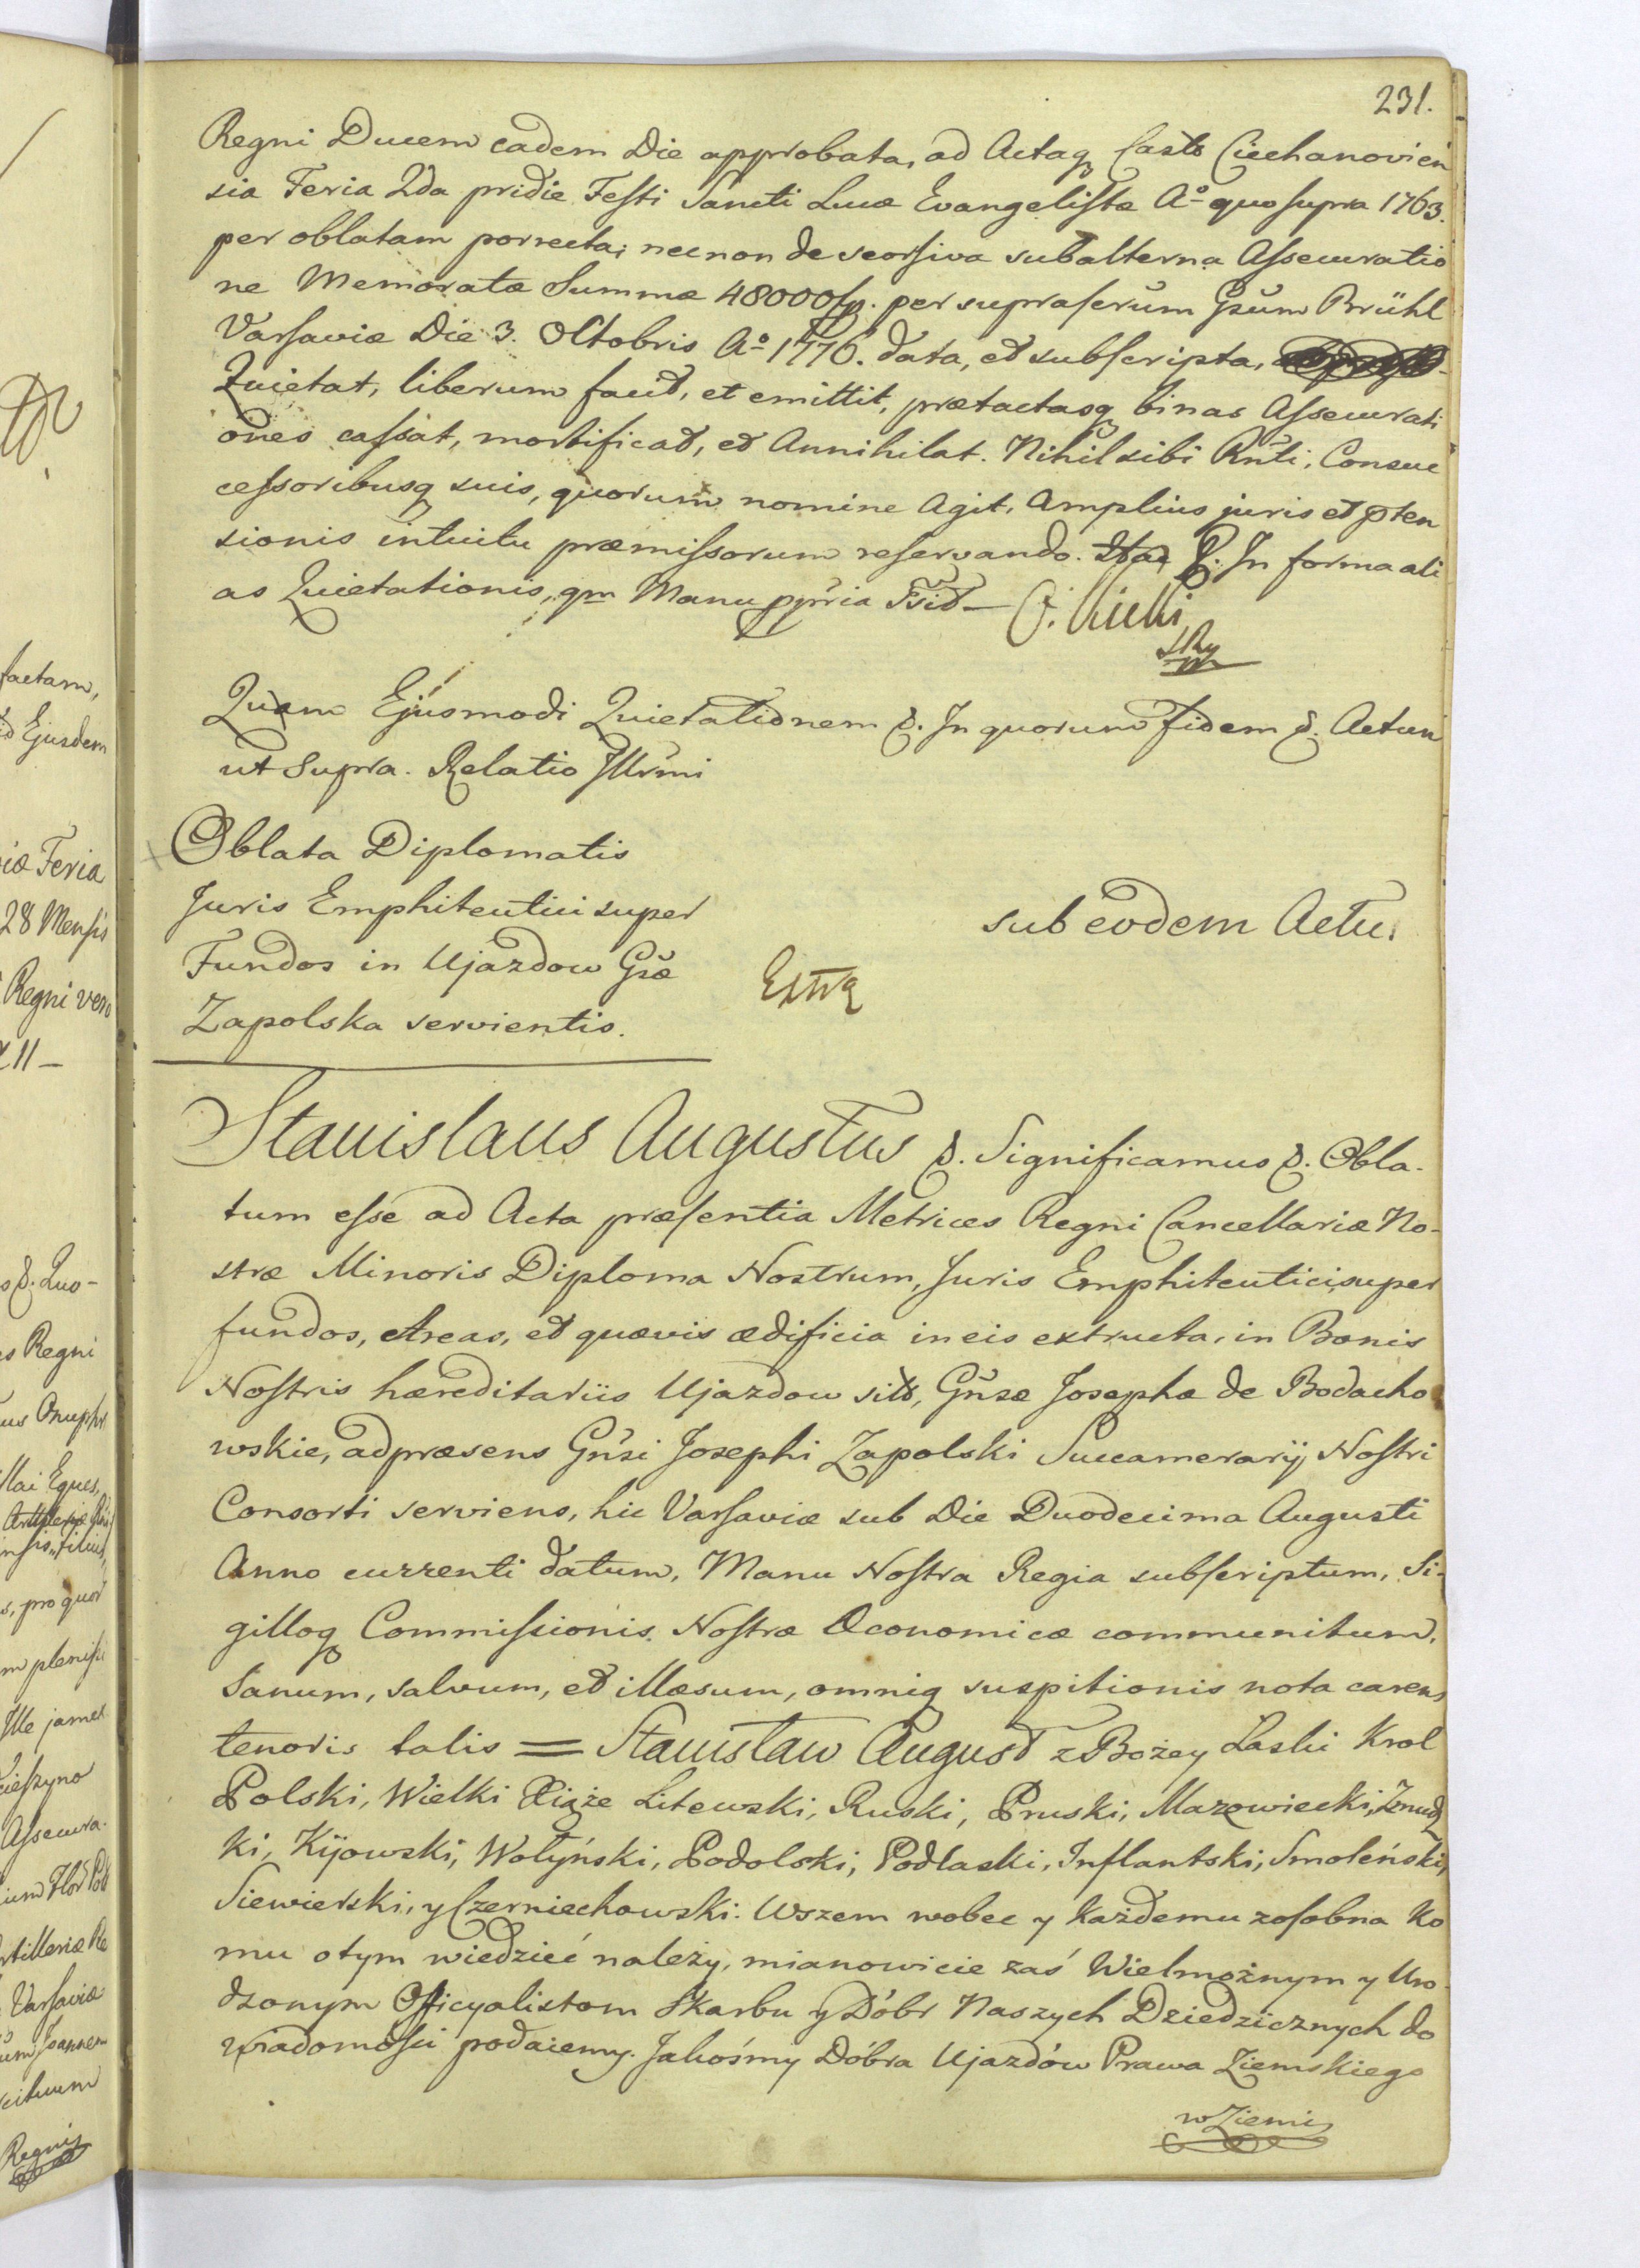 231.
Regni Ducem eadem Die approbata, ad Actaq Castr Ciechanovien
sia Feria 2da pridie Festi Sancti Lucæ Evangelistæ Ao quo supra 1763.
per oblatam porrecta; necnon de seorsiva subalterna Assecuratio
ne Memoratæ Summæ 48000 fp. per suprascrum Gsum Brühl
Varsaviæ Die 3. Octobris Ao 1776. data, et subscripta,
Quietat, liberum facit, et emittit, prætactasq binas Assecurati
ones cassat, mortificat, et Annihilat. Nihil sibi Rnti, Consuc
cessoribusq suis, quorum nomine Agit, Amplius juris et pten
sionis intuitu præmissorum reservando. In forma ali
as Quietationis, qm Manu ppria Fsit
Quam Ejusmodi Quietationem &. In quorum fidem &. Actum
ut Supra. Relatio Illrmi
Oblata Diplomatis
Juris Emphiteutici super
Fundos in Ujazdow Gsæ
Zapolska servientis.
sub eodem Actu.
Extra
Stanislaus Augustus &. Significamus &. Obla-
tum esse ad Acta præsentia Metrices Regni Cancellariæ No-
stræ Minoris Diploma Nostrum, Juris Emphiteutici, super
fundos, Areas, et quævis ædificia in eis extructa, in Bonis
Nostris hæreditariis Ujazdow sits, Gnsæ Josephæ de Bodacho
wskie, ad præsens Gnsi Josephi Zapolski Succamerarij Nostri
Consorti serviens, hic Varsaviæ sub Die Duodecima Augusti
Anno currenti datum, Manu Nostra Regia subscriptum, Si-
gilloq Commissionis Nostræ Oeconomicæ communitum,
Sanum, salvum, et illæsum, omniq suspitionis nota carens
tenoris talis = Stanisław August z Bożey Laski Krol
Polski, Wielki Xiąże Litewski, Ruski, Pruski, Mazowiecki, Żmudz
ki, Kijowski, Wołyński, Podolski, Podlaski, Inflantski, Smoleński,
Siewierski, y Czerniechowski. Wszem wobec y każdemu zosobna ko
mu otym wiedzieć należy, mianowicie zaś Wielmożnym y Uro-
dzonym Officyalistom Skarbu y Dóbr Naszych Dziedzicznych do
wiadomości podaiemy. Jakośmy Dóbra Ujazdów Prawa Ziemskiego
w Ziemi
factam,
Ejusdem
iæ Feria
28 Mensis
Regni vero
11 —
&. Quo-
Regni
Eques,
pro quot
Ille jamet
Assecura-
Varsaviæ
Joannem
Regni